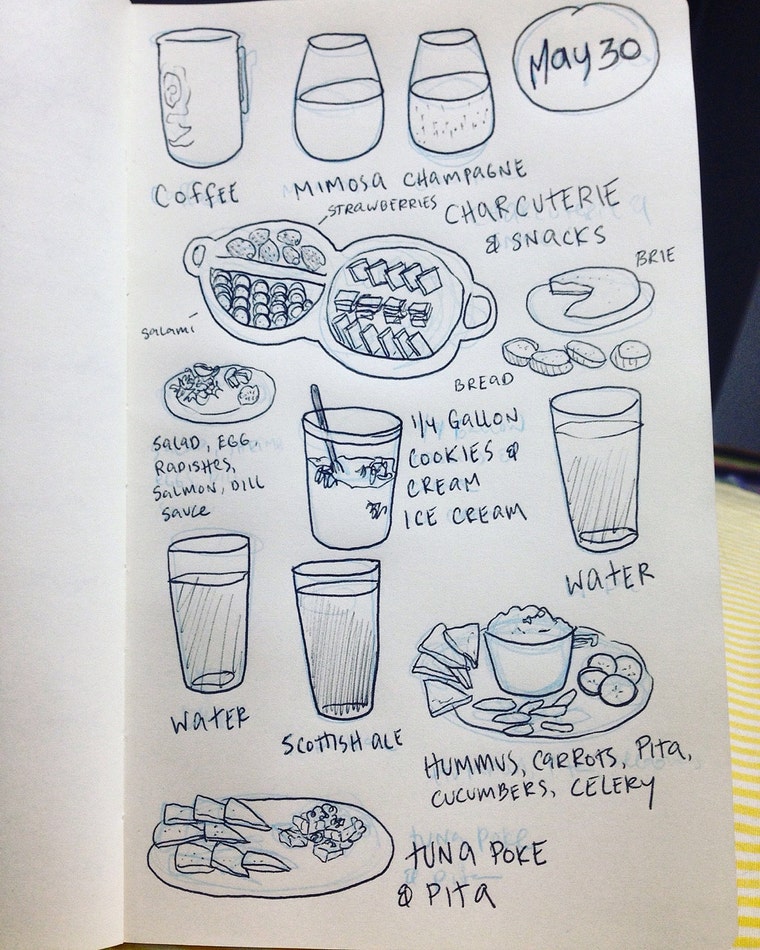 May 30
COFFEE
MIMOSA CHAMPAGNE
STRAWBERRIES
CHARCUTERIE
& SNACKS
BRIE
SALAMI
BREAD
SALAD, EGG
RADISHES,
SALMON, DILL
SAUCE
1/4 GALLON
COOKIES &
CREAM
ICE CREAM
WATER
WATER
SCOTTISH ALE
HUMMUS, CARROTS, PITA,
CUCUMBERS, CELERY
TUNA POKE
& PITA